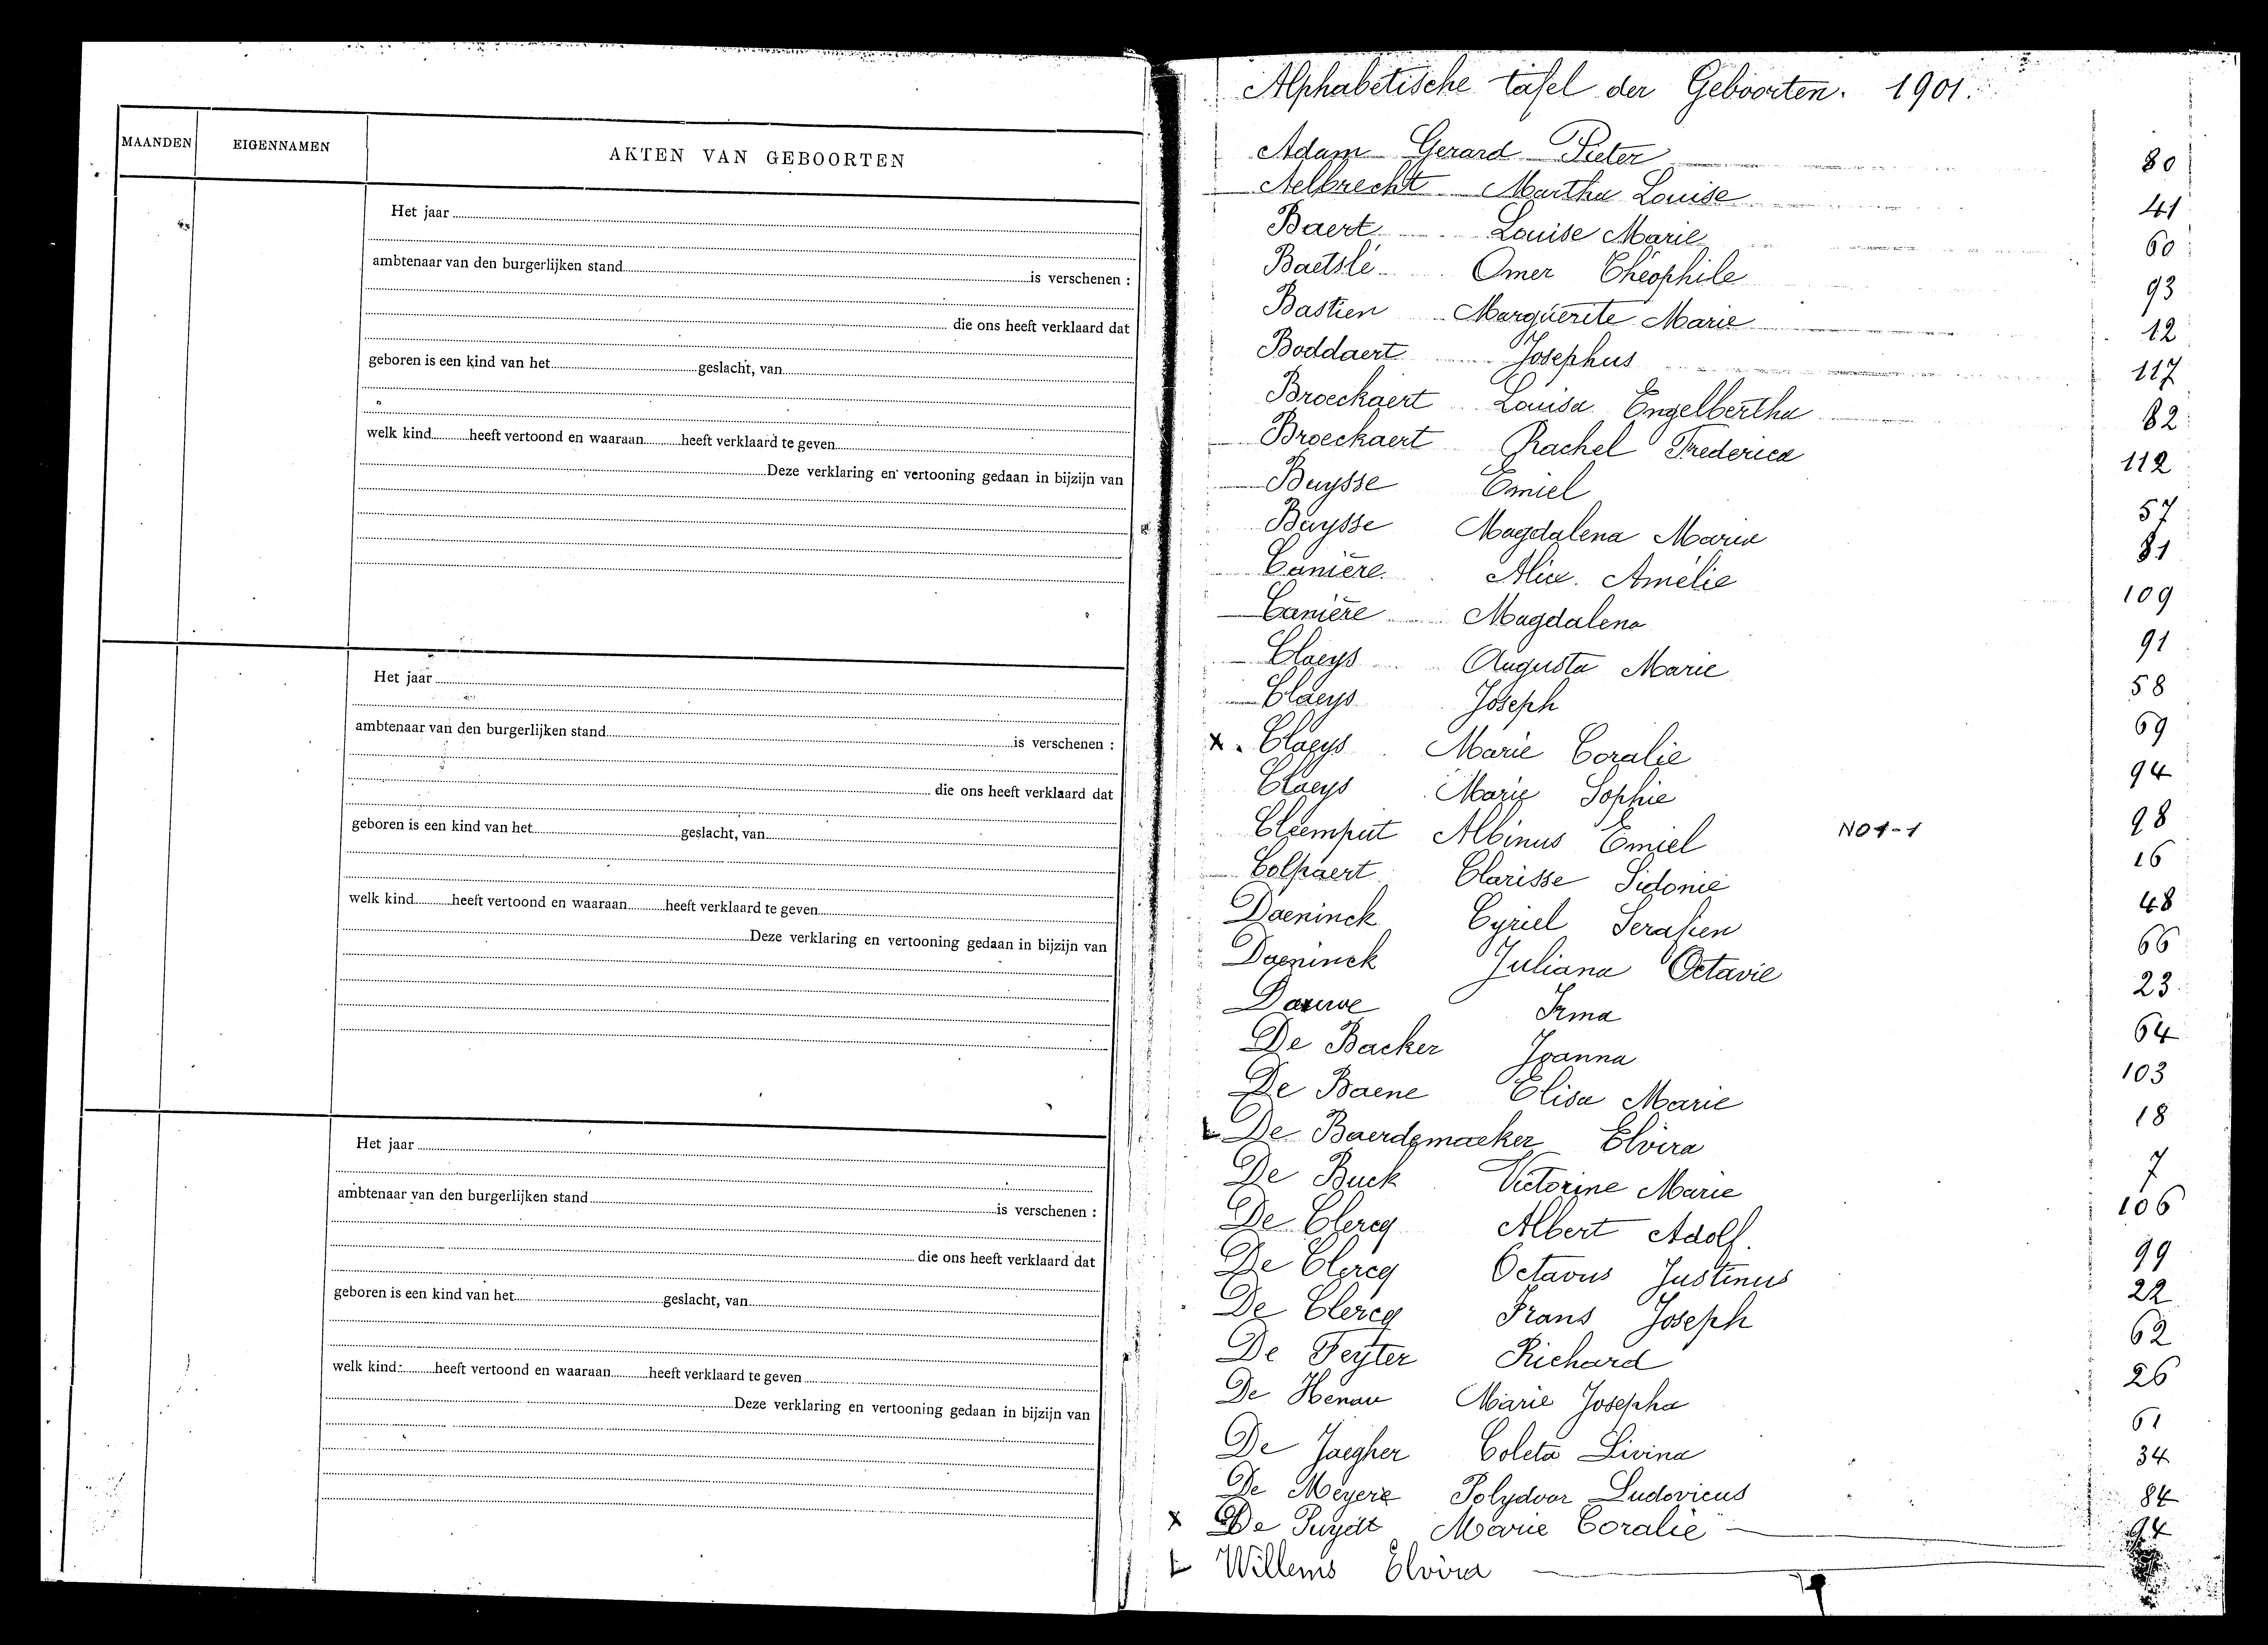 MAANDEN EIGENNAMEN AKTEN VAN GEBOORTEN
Het jaar
ambtenaar van den burgerlijken stand is verschenen :
die ons heeft verklaard dat
geboren is een kind van het geslacht, van
welk kind heeft vertoond en waaraan heeft verklaard te geven
Deze verklaring en vertooning gedaan in bijzijn van
Het jaar
ambtenaar van den burgerlijken stand is verschenen :
die ons heeft verklaard dat
geboren is een kind van het geslacht, van
welk kind heeft vertoond en waaraan heeft verklaard te geven
Deze verklaring en vertooning gedaan in bijzijn van
Het jaar
ambtenaar van den burgerlijken stand is verschenen :
die ons heeft verklaard dat
geboren is een kind van het geslacht, van
welk kind heeft vertoond en waaraan heeft verklaard te geven
Deze verklaring en vertooning gedaan in bijzijn van
Alphabetische tafel der Geboorten. 1901.
Adam Gerard Pieter 80
Aelbrecht Martha Louise 41
Baert Louise Marie 60
Baetslé Omer Théophile 93
Bastien Marguerite Marie 12
Boddaert Josephus 117
Broeckaert Louisa Engelbertha 82
Broeckaert Rachel Frederica 112
Buysse Emiel 57
Buysse Magdalena Maria 81
Canière Alice Amélie 109
Canière Magdalena 91
Claeys Augusta Marie 58
Claeys Joseph 69
x. Claeys Marie Coralie 94
Claeys Marie Sophie 98
Cleemput Albinus Emiel NO1-1 16
Colpaert Clarisse Sidonie 48
Daeninck Cyriel Serafien 66
Daeninck Juliana Octavie 23
Dauwe Irma 64
De Backer Joanna 103
De Baene Elisa Marie 18
L De Baerdemaeker Elvira 7
De Buck Victorine Marie 106
De Clercq Albert Adolf. 99
De Clercq Octavus Justinus 22
De Clercq Frans Joseph 62
De Feyter Richard 26
De Henau Marie Josepha 61
De Jaegher Coleta Livina 34
De Meyere Polydoor Ludovicus 84
x De Puydt Marie Coralie 94
L Willems Elvira